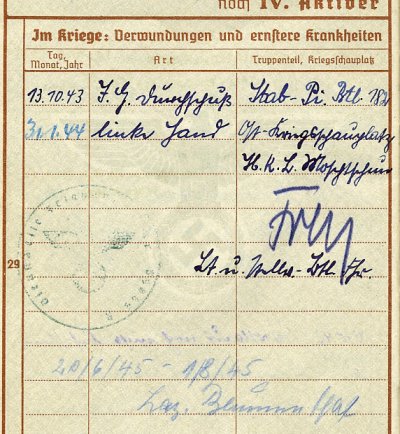 noch IV. Aktiver
Im Kriege: Verwundungen und ernstere Krankheiten
Tag, Monat, Jahr Art Truppenteil, Kriegsschauplatz
13.10.43 J. G. Durchschuß Stab- Pi. Btl. 182
31.1.44 linke Hand Ost-Kriegsschauplatz
H.K.L.
Frey
29
Lt. u. Stellv. Btl. Fhr.
Dienststelle Feldpost
20/6/45 - 1/8/45
Laz.